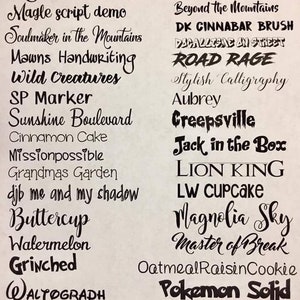 Magic script demo
Soulmaker in the Mountains
Mawns Handwriting
Wild Creatures
SP Marker
Sunshine Boulevard
Cinnamon Cake
Missionpossible
Grandmas Garden
djb me and my shadow
Buttercup
Watermelon
Grinched
WALTOGRAPH
Beyond the Mountains
DK CINNABAR BRUSH
STREET
ROAD RAGE
Stylish Calligraphy
Aubrey
Creepsville
Jack in the Box
LION KING
LW CUPCAKE
Magnolia Sky
Master of Break
OatmealRaisinCookie
Pokemon Solid